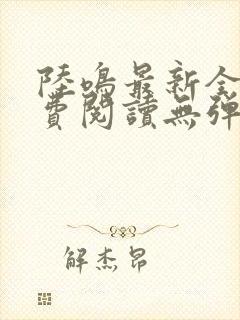 陸鳴最新全
費閱讀無彈
解杰昂